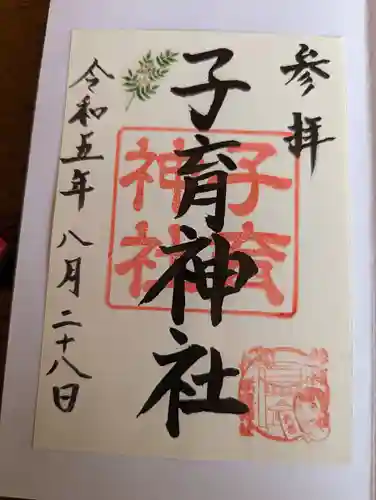 参拝
子育神社
子育
神社
令和五年八月二十八日